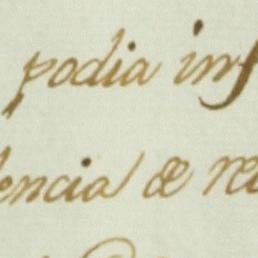 podia inf
encia de re